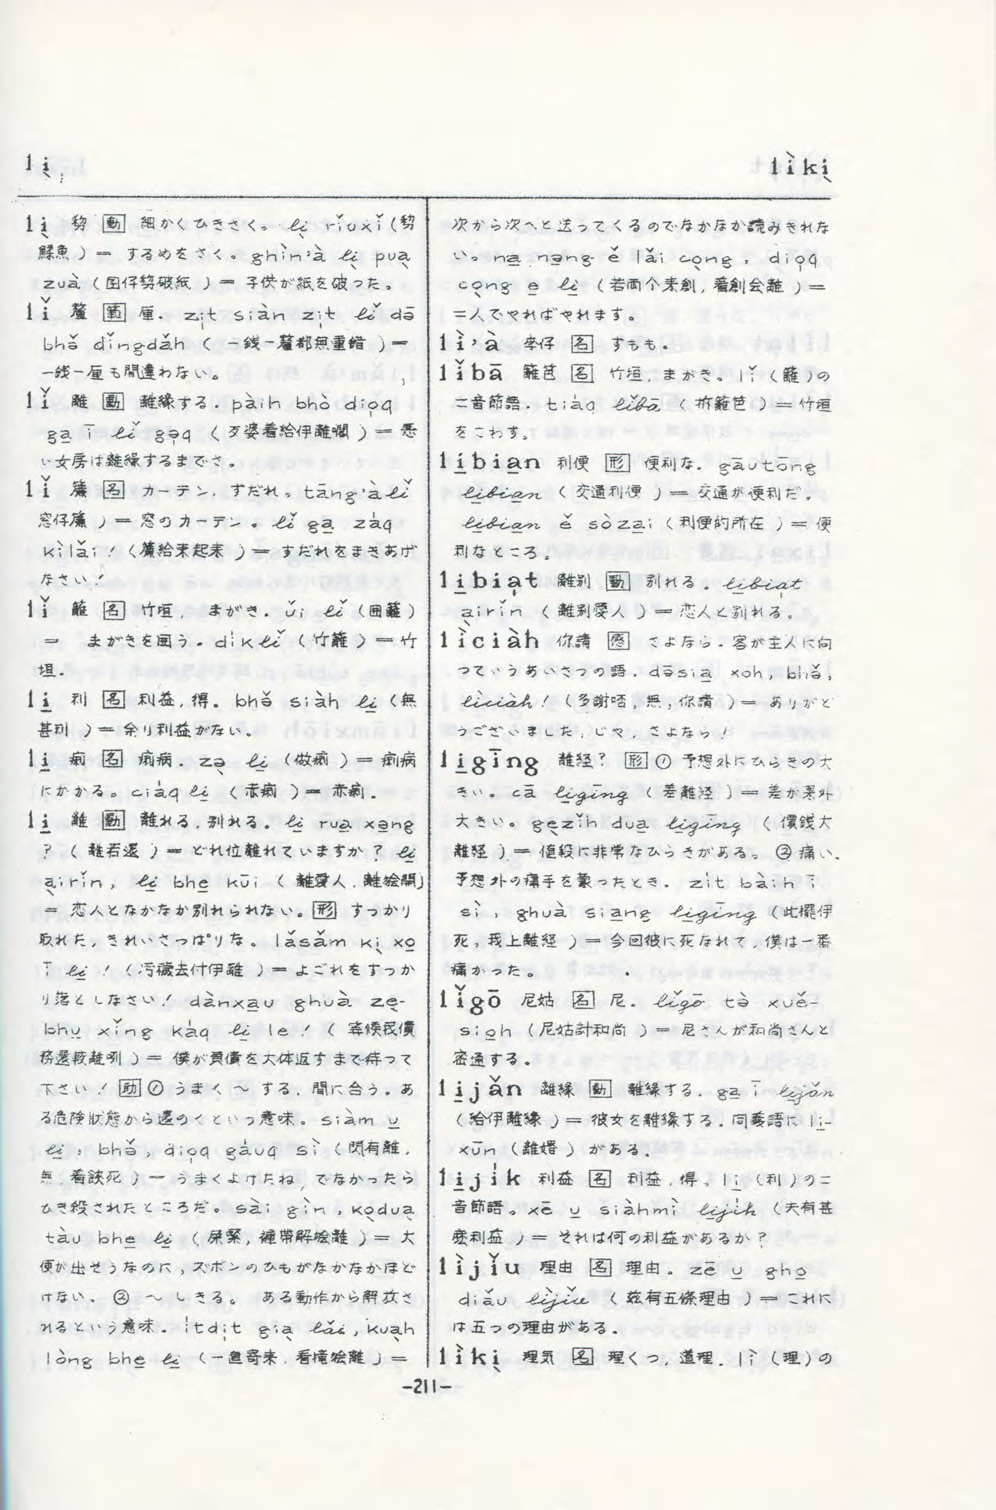 li̱ lìki̱
li̱ 剺 動 細かくひきさく。li̱ riǔxǐ (剺
鰇魚) = するめをさく。ghìn'à li̱ pua̱
zuà (囡仔剺破紙) = 子供が紙を破った。
lǐ 釐 量 厘. zi̍t siàn zi̍t lǐ dō
bhǒ dǐngdǎh (一銭一釐都無重錯) =
一銭一厘も間違わない。
lǐ 離 動 離縁する. pàih bhò dio̱q
ga̱ ī lǐ ga̱q (歹婆着給伊離嗝) = 悪
い女房は離縁するまでさ。
lǐ 簾 名 カーテン, すだれ。tāng'à lǐ
窓仔簾) = 窓のカーテン。lǐ ga̱ zàq
kìlǎi! (簾給来起来) = すだれをまきあげ
なさい!
lǐ 籬 名 竹垣, まがき. ǔi lǐ (囲籬)
= まがきを囲う. diklǐ (竹籬) = 竹
垣.
li̱ 利 名 利益, 得. bhǒ siàh li̱ (無
甚利) = 余り利益がない。
li̱ 痢 名 痢病. zo̱ li̱ (做痢) = 痢病
にかかる。ciàq li̱ (赤痢) = 赤痢.
li̱ 離 動 離れる, 別れる. li̱ rua̱ xa̱ng
? (離若遠) = どれ位離れていますか? li̱
a̱irǐn, li̱ bhe̱ kūi (離愛人, 離𫢶開)
= 恋人となかなか別れられない。形 すっかり
取れた, きれいさっぱりな。làsǎm ki̱ xo̱
ī li̱! (汚穢去付伊離) = よごれをすっか
り落としなさい! dànxa̱u ghuà ze̱-
bhu̱ xǐng kàq li̱ le! (等候我債
務還較離咧) = 僕が負債を大体返すまで待って
下さい! 助 ①うまく~する, 間に合う。あ
る危険状態から遠のくという意味. siàm u̱
li̱, bhǒ, dio̱q gǎuq sì (閃有離,
無, 着𫢶死) = うまくよけたね, でなかったら
ひき殺されたところだ。sài gìn, ko̱dua̱
tàu bhe̱ li̱ (屎緊, 褲帯解𫢶離) = 大
便が出そうなのに, ズボンのひもがなかなかほど
けない. ②~しきる。 ある動作から解放さ
れるという意味. i̍tdi̍t gia̱ lǎi, kua̱h
lòng bhe̱ li̱ (一直寄来, 看攏𫢶離) =
次から次へと送ってくるのでなかなか読みきれな
い。na̱ nǎng ě lǎi co̱ng, dio̱q
co̱ng e̱ li̱ (若両个来創, 着創会離) =
二人でやればやれます.
lì'à 李仔 名 すもも.
lǐbā 籬笆 名 竹垣, まがき. lǐ (籬) の
二音節語. tiàq lǐbā (拆籬笆) = 竹垣
をこわす。
li̱bia̱n 利便 形 便利な. gāutōng
li̱bia̱n (交通利便) = 交通が便利だ.
li̱bia̱n ě sòza̱i (利便的所在) = 便
利なところ。
li̱bia̍t 離別 動 別れる. li̱bia̍t
a̱irǐn (離別愛人) = 恋人と別れる。
lìciàh 你請 感 さよなら. 客が主人に向
っていうあいさつの語. dōsia̱ xoh, bhǒ,
lìciàh! (多謝嗬, 無, 你請) = ありがと
うございました, じゃ, さよなら!
li̱gīng 離経? 形 ① 予想外にひらきの大
きい。cā li̱gīng (差離経) = 差が案外
大きい。ge̱zǐh dua̱ li̱gīng (價銭大
離経) = 値段に非常なひらきがある。②痛い.
予想外の痛手を蒙ったとき. zi̍t bàih ī
sì, ghuà sia̱ng li̱gīng (此擺伊
死, 我上離経) = 今回彼に死なれて, 僕は一番
痛かった。
lǐgō 尼姑 名 尼. lǐgō tò xuě-
sio̱h (尼姑討和尚) = 尼さんが和尚さんと
密通する.
li̱jǎn 離縁 動 離縁する. ga̱ ī li̱jǎn
(給伊離縁) = 彼女を離縁する. 同義語に li̱-
xūn (離婚) がある.
li̱jik 利益 名 利益, 得. li̱ (利) の二
音節語。xē u̱ siàhmì li̱jik (夫有甚
麽利益) = それは何の利益があるか?
lìjǐu 理由 名 理由. zē u̱ gho̱
diǎu lìjǐu (玆有五條理由) = これに
は五つの理由がある.
lìki̱ 理気 名 理くつ, 道理. lì (理) の
-211-